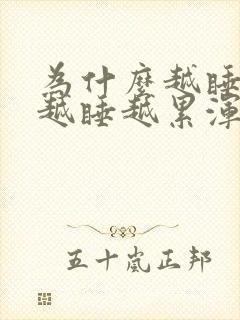 為什麼越睡
越睡越累渾
五十嵐正邦